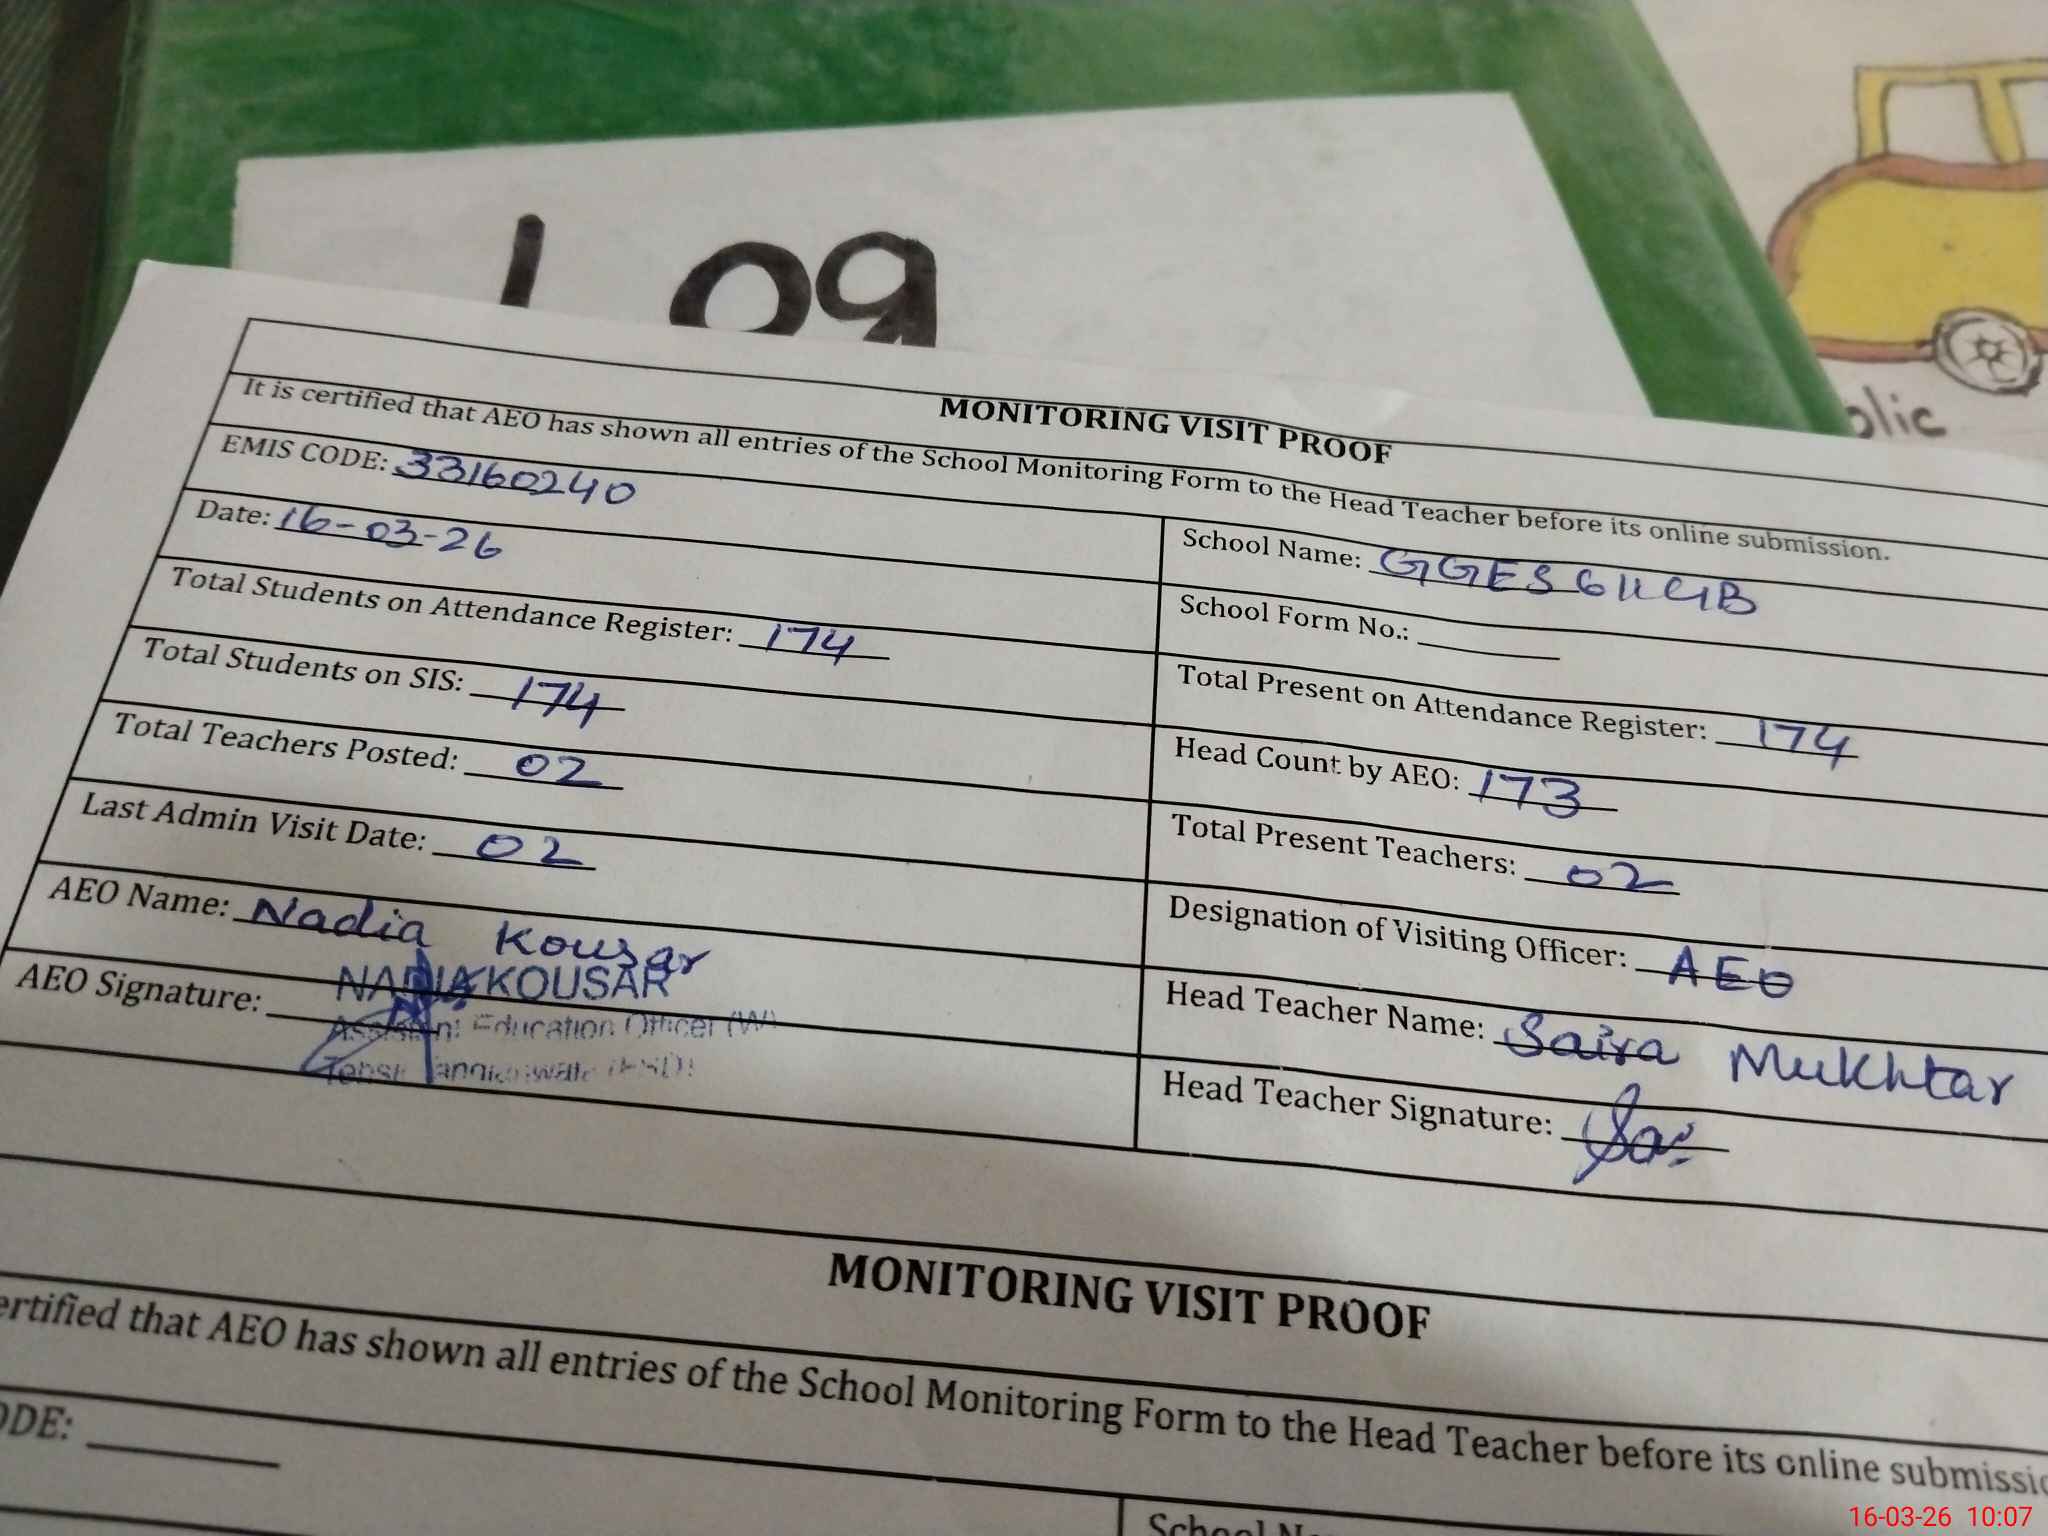 Log
olic
MONITORING VISIT PROOF
It is certified that AEO has shown all entries of the School Monitoring Form to the Head Teacher before its online submission.
EMIS CODE: 33160240
School Name: GGES 611 GB
Date: 16-03-26
School Form No.:
Total Students on Attendance Register: 174
Total Present on Attendance Register: 174
Total Students on SIS: 174
Head Count by AEO: 173
Total Teachers Posted: 02
Total Present Teachers: 02
Last Admin Visit Date: 02
Designation of Visiting Officer: AEO
AEO Name: Nadia Kousar
Head Teacher Name: Saira Mukhtar
AEO Signature:
NADIA KOUSAR
Assistant Education Officer (W)
Head Teacher Signature:
MONITORING VISIT PROOF
ertified that AEO has shown all entries of the School Monitoring Form to the Head Teacher before its online submissio
ODE:
School N
16-03-26 10:07